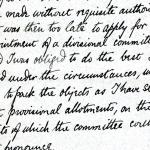 made without requisite autho
was then too late to apply for
ointment of a divisional committe
d I was obliged to do the best I
d under the circumstances, w
to pack the objects as I have se
t provisional allotments, on the
ts of which the committee cou
pronounce